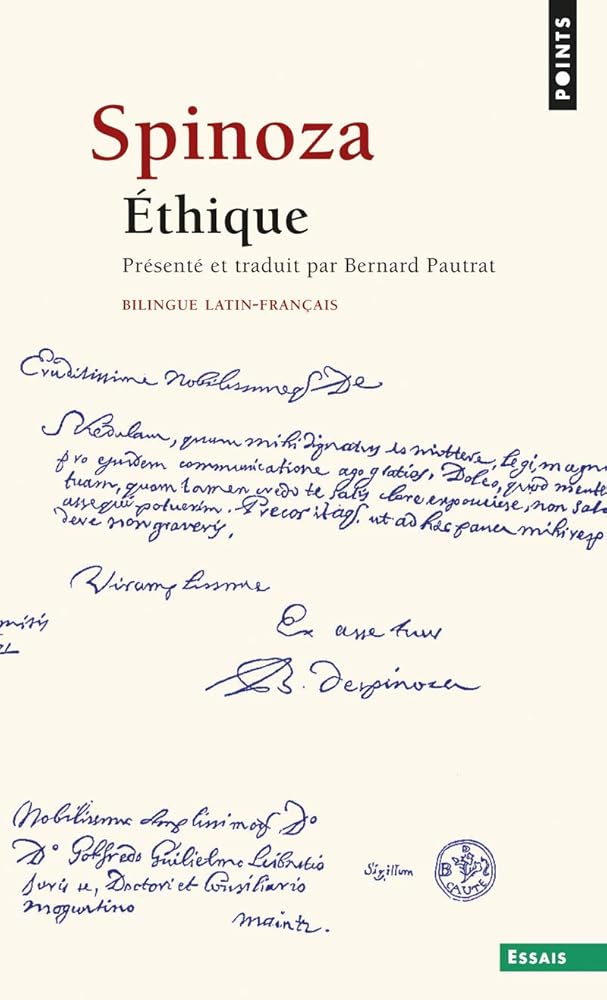 POINTS
Spinoza
Éthique
Présenté et traduit par Bernard Pautrat
BILINGUE LATIN-FRANÇAIS
Eruditissime Nobilissimeq
Schedulam, quam mihi dignatus es mittere, legi magn
pro ejusdem communicatione ago gratias. Doleo, quod mente
tuam, quam tamen credo te satis clare exposuisse, non sat
assequi potuerim. Precor itaq. ut ad hæc pauca mihi resp
dere non graveris.
Vir amplissime
Ex asse tuus
B. despinoza
Nobilissimo
D° Gotfredo Guilielmo Leibnitio
Juris u, Doctori et Consiliario
Moguntino
maintz.
Sigillum
B D S
CAUTE
ESSAIS